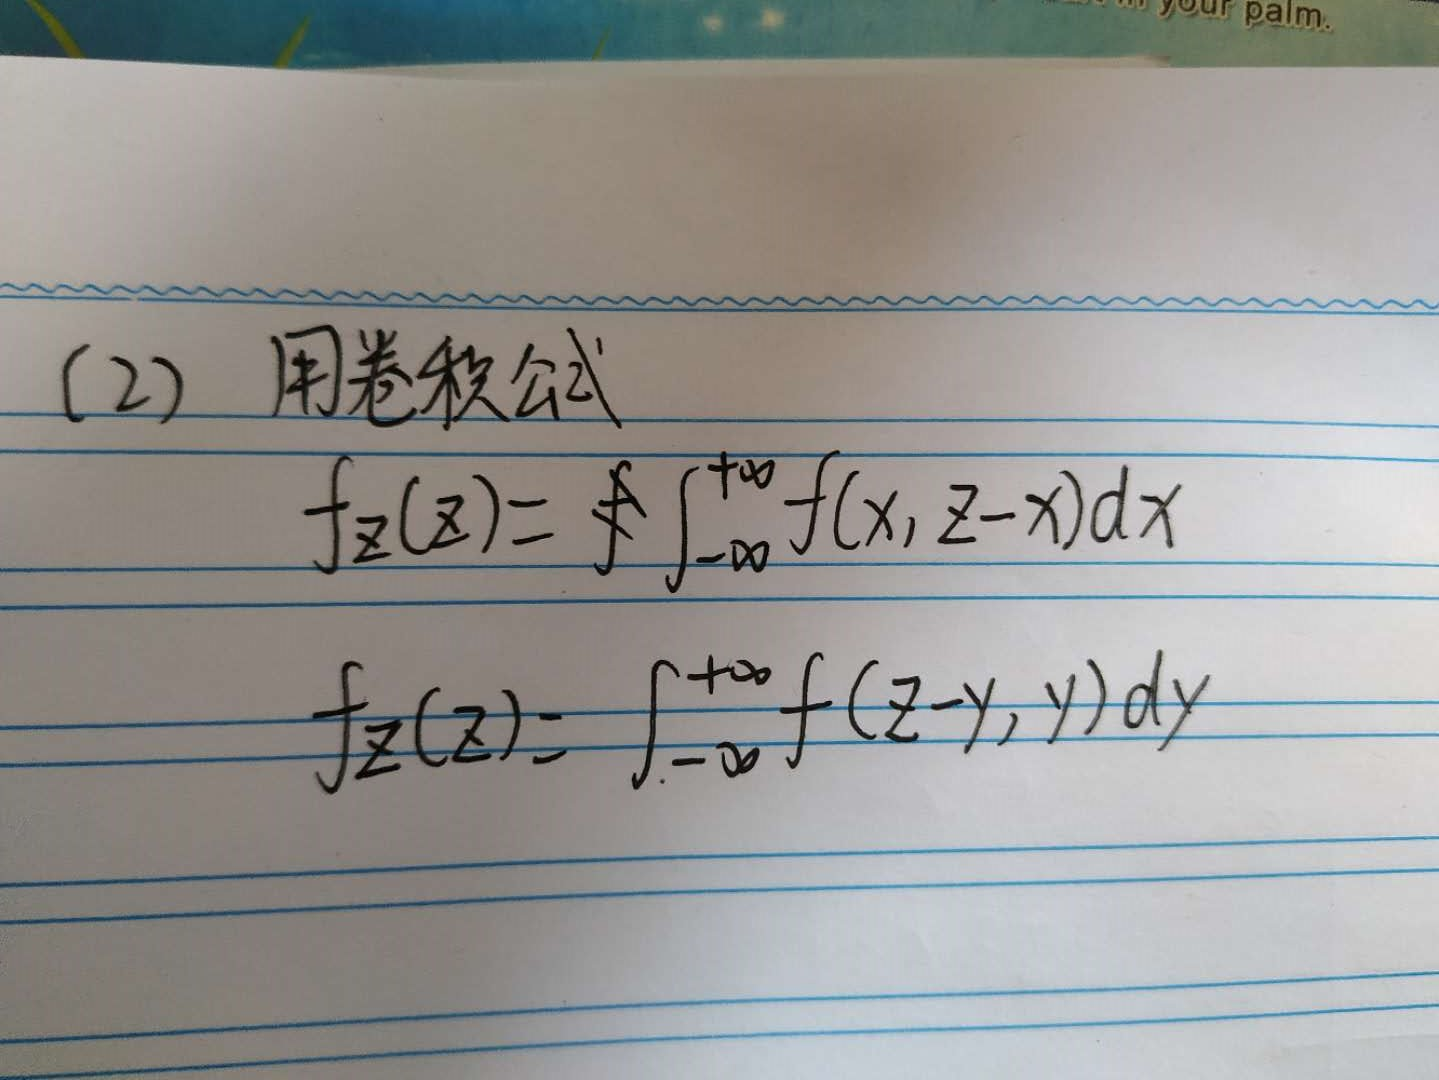 in your palm.
(2) 用卷积公式
f_Z(z)= ∫_{-∞}^{+∞} f(x, z-x)dx
f_Z(z)= ∫_{-∞}^{+∞} f(z-y, y)dy